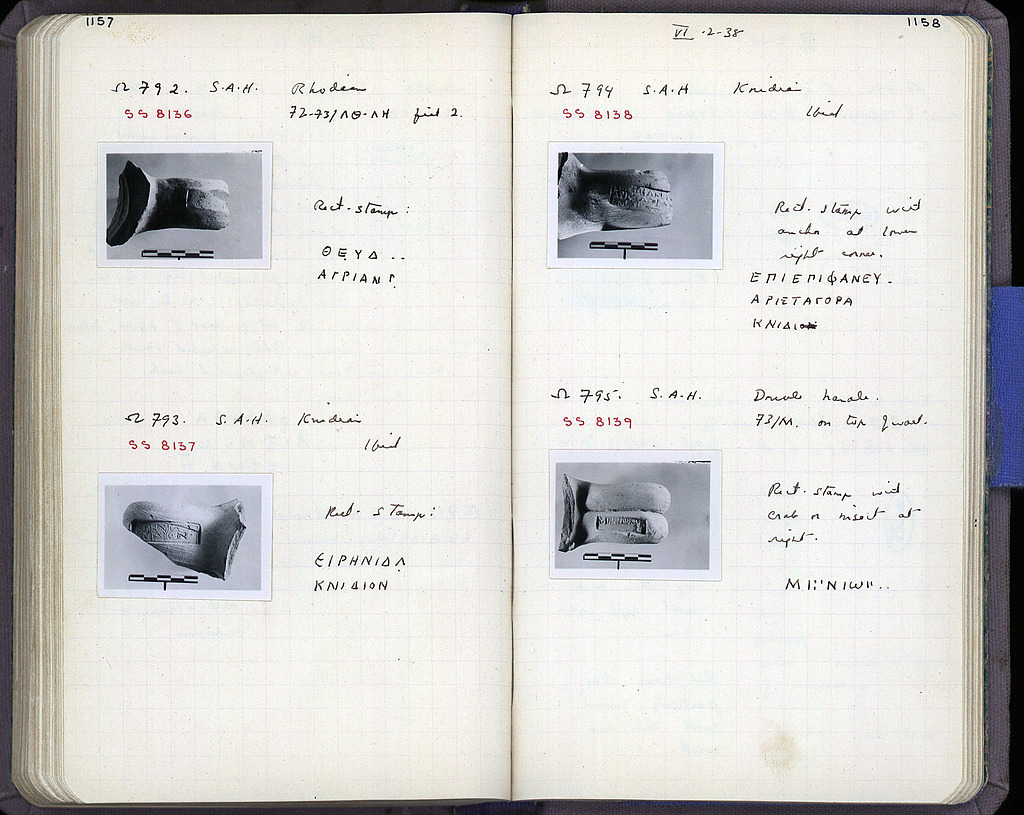 1157
Ω 792. S.A.H. Rhodian
SS 8136 72-73/ΛΘ-ΛΗ fill 2.
Rect. stamp:
ΘΕΥΔ ..
ΑΓΡΙΑΝΓ.
Ω 793. S.A.H. Knidian
SS 8137 Ibid
Rect. stamp:
ΕΙΡΗΝΙΔΑ
ΚΝΙΔΙΟΝ
1158
VI-2-38
Ω 794 S.A.H Knidian
SS 8138 Ibid
Rect. stamp with
anchor at lower
right corner.
ΕΠΙΕΠΙΦΑΝΕΥ.
ΑΡΙΣΤΑΓΟΡΑ
ΚΝΙΔΙΟΝ
Ω 795. S.A.H. Double handle.
SS 8139 73/Μ. on top of wall.
Rect. stamp with
crab or insect at
right.